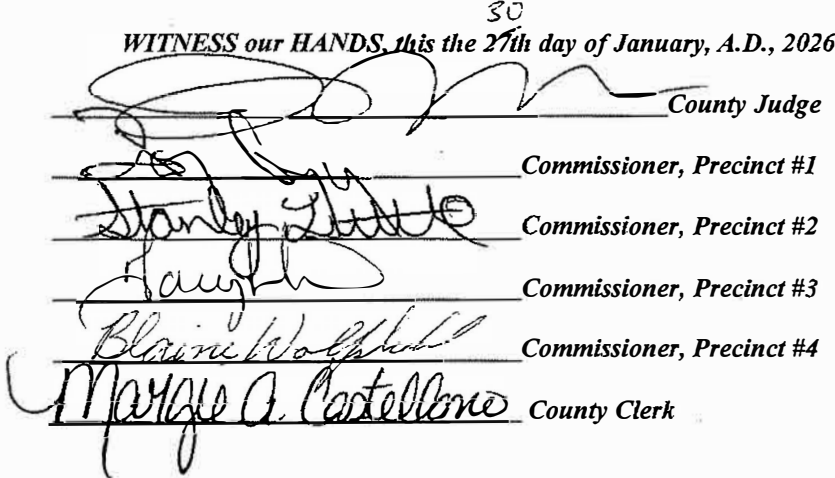 30
WITNESS our HANDS, this the 27th day of January, A.D., 2026
County Judge
Commissioner, Precinct #1
Stanley Commissioner, Precinct #2
Commissioner, Precinct #3
Blaine Commissioner, Precinct #4
Margie A. Castellano County Clerk